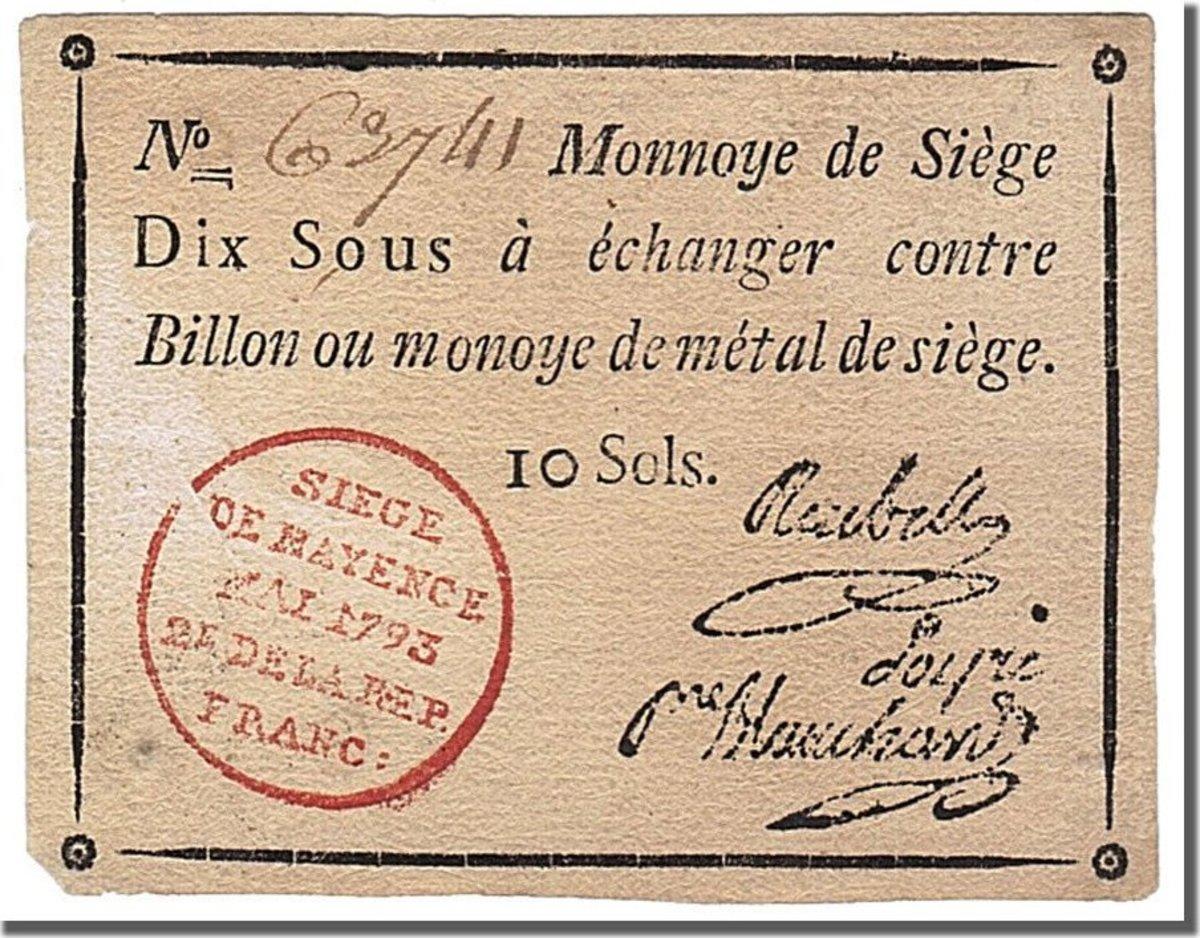 No 63741 Monnoye de Siège
Dix Sous à échanger contre
Billon ou monoye de métal de siège.
10 Sols.
SIEGE
DE MAYENCE
MAI 1793
2E DE LA REP.
FRANC:
Reubell